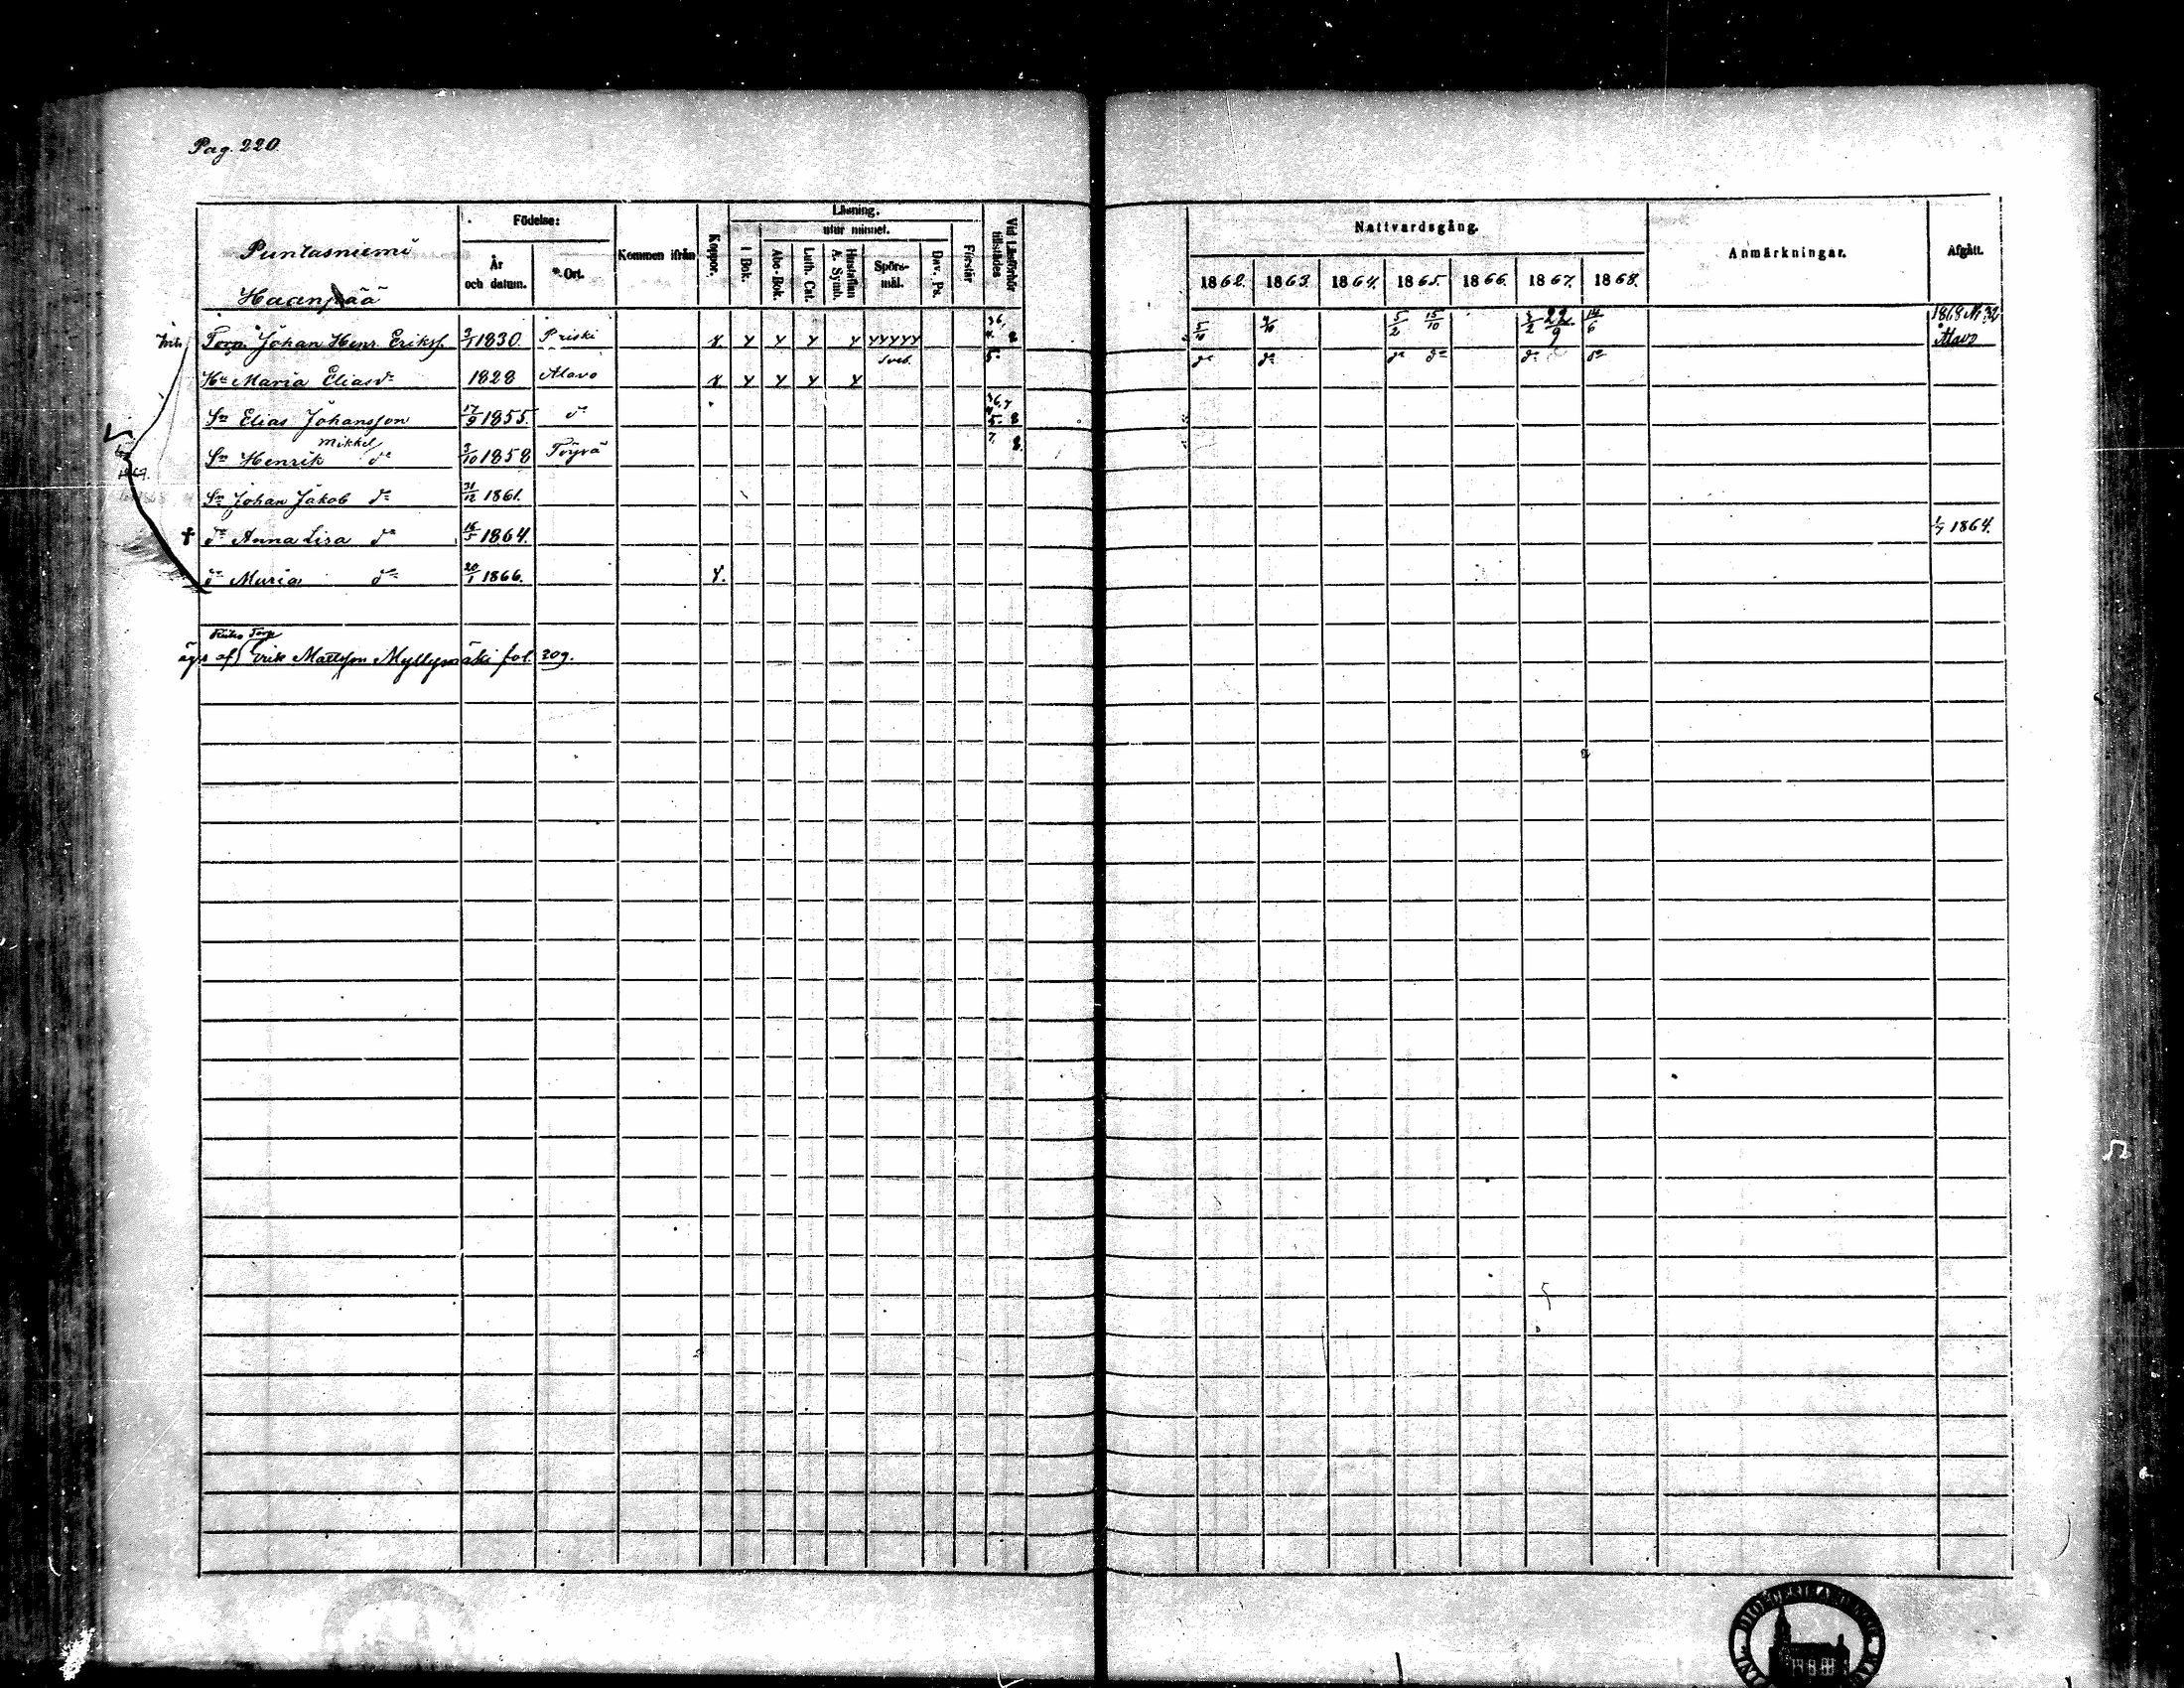 Pag. 220.
Puntasniemi
Haanpää
Födelse:
År och datum.
Ort.
Kommen ifrån
Koppor.
Läsning.
utur minnet.
I Bok.
Abc-Bok.
Luth. Cat.
Hustaflan A. Symb.
Spörs-mål.
Dav. Ps.
Förstår
Vid Läsförhör tillstädes
Nattvardsgång.
1862. 1863. 1864. 1865. 1866. 1867. 1868.
Anmärkningar.
Afgått.
Torp. Johan Henr. Eriksf. 3/1 1830. Priski x y y y y yyyyy 8 5/10 4/10 5/2 15/10 3/2 22/9 14/6 1868 N: 32 Alavo
Hu Maria Eliasdr 1828 Alavo x y y y y Sved. 5 do do do do do do
Sn Elias Johansson 17/9 1855. do 8
Sn Henrik Mikkel do 3/10 1858 Töysä 7. 8.
Sn Johan Jakob do 31/12 1861.
† dr Anna Lisa do 16/5 1864. 1/7 1864.
dr Maria do 20/1 1866. y.
äges af Torp Erik Mattsson Myllymäki fol. 209.